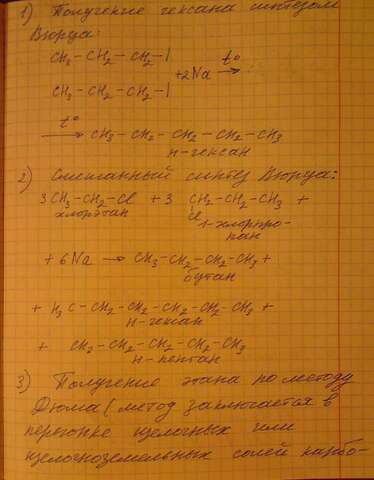 1) Получение гексана синтезом
Вюрца:
CH3 – CH2 – CH2 – I
+2Na t° →
CH3 – CH2 – CH2 – I
t° → CH3 – CH2 – CH2 – CH2 – CH3
н-гексан
2) Смешанный синтез Вюрца:
3CH3 – CH2 – Cl + 3 CH2 – CH2 – CH3 +
хлорэтан Cl 1-хлорпро-
пан
+ 6Na → CH3 – CH2 – CH2 – CH3 +
бутан
+ H3C – CH2 – CH2 – CH2 – CH2 – CH3 +
н-гексан
+ CH3 – CH2 – CH2 – CH2 – CH3
н-пентан
3) Получение этана по методу
Дюма (метод заключается в
перегонке щелочных или
щелочноземельных солей карбо-